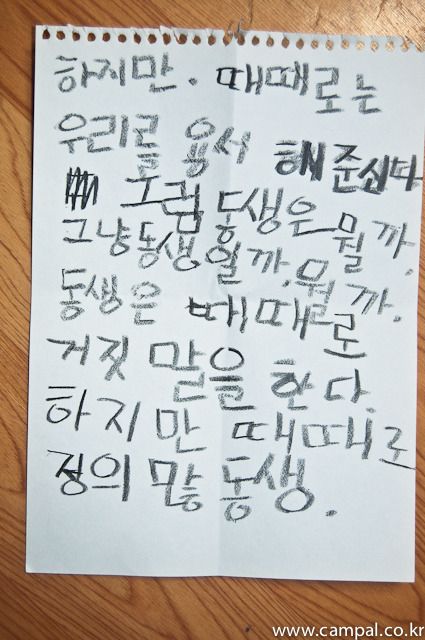 하지만. 때때로는
우리를 용서 해준신다
그럼 동생은 뭘까.
그냥동생일까. 뭘까.
동생은 때때로
거짓 말을 한다.
하지만 때때로
정의 많은 동생.
www.campal.co.kr